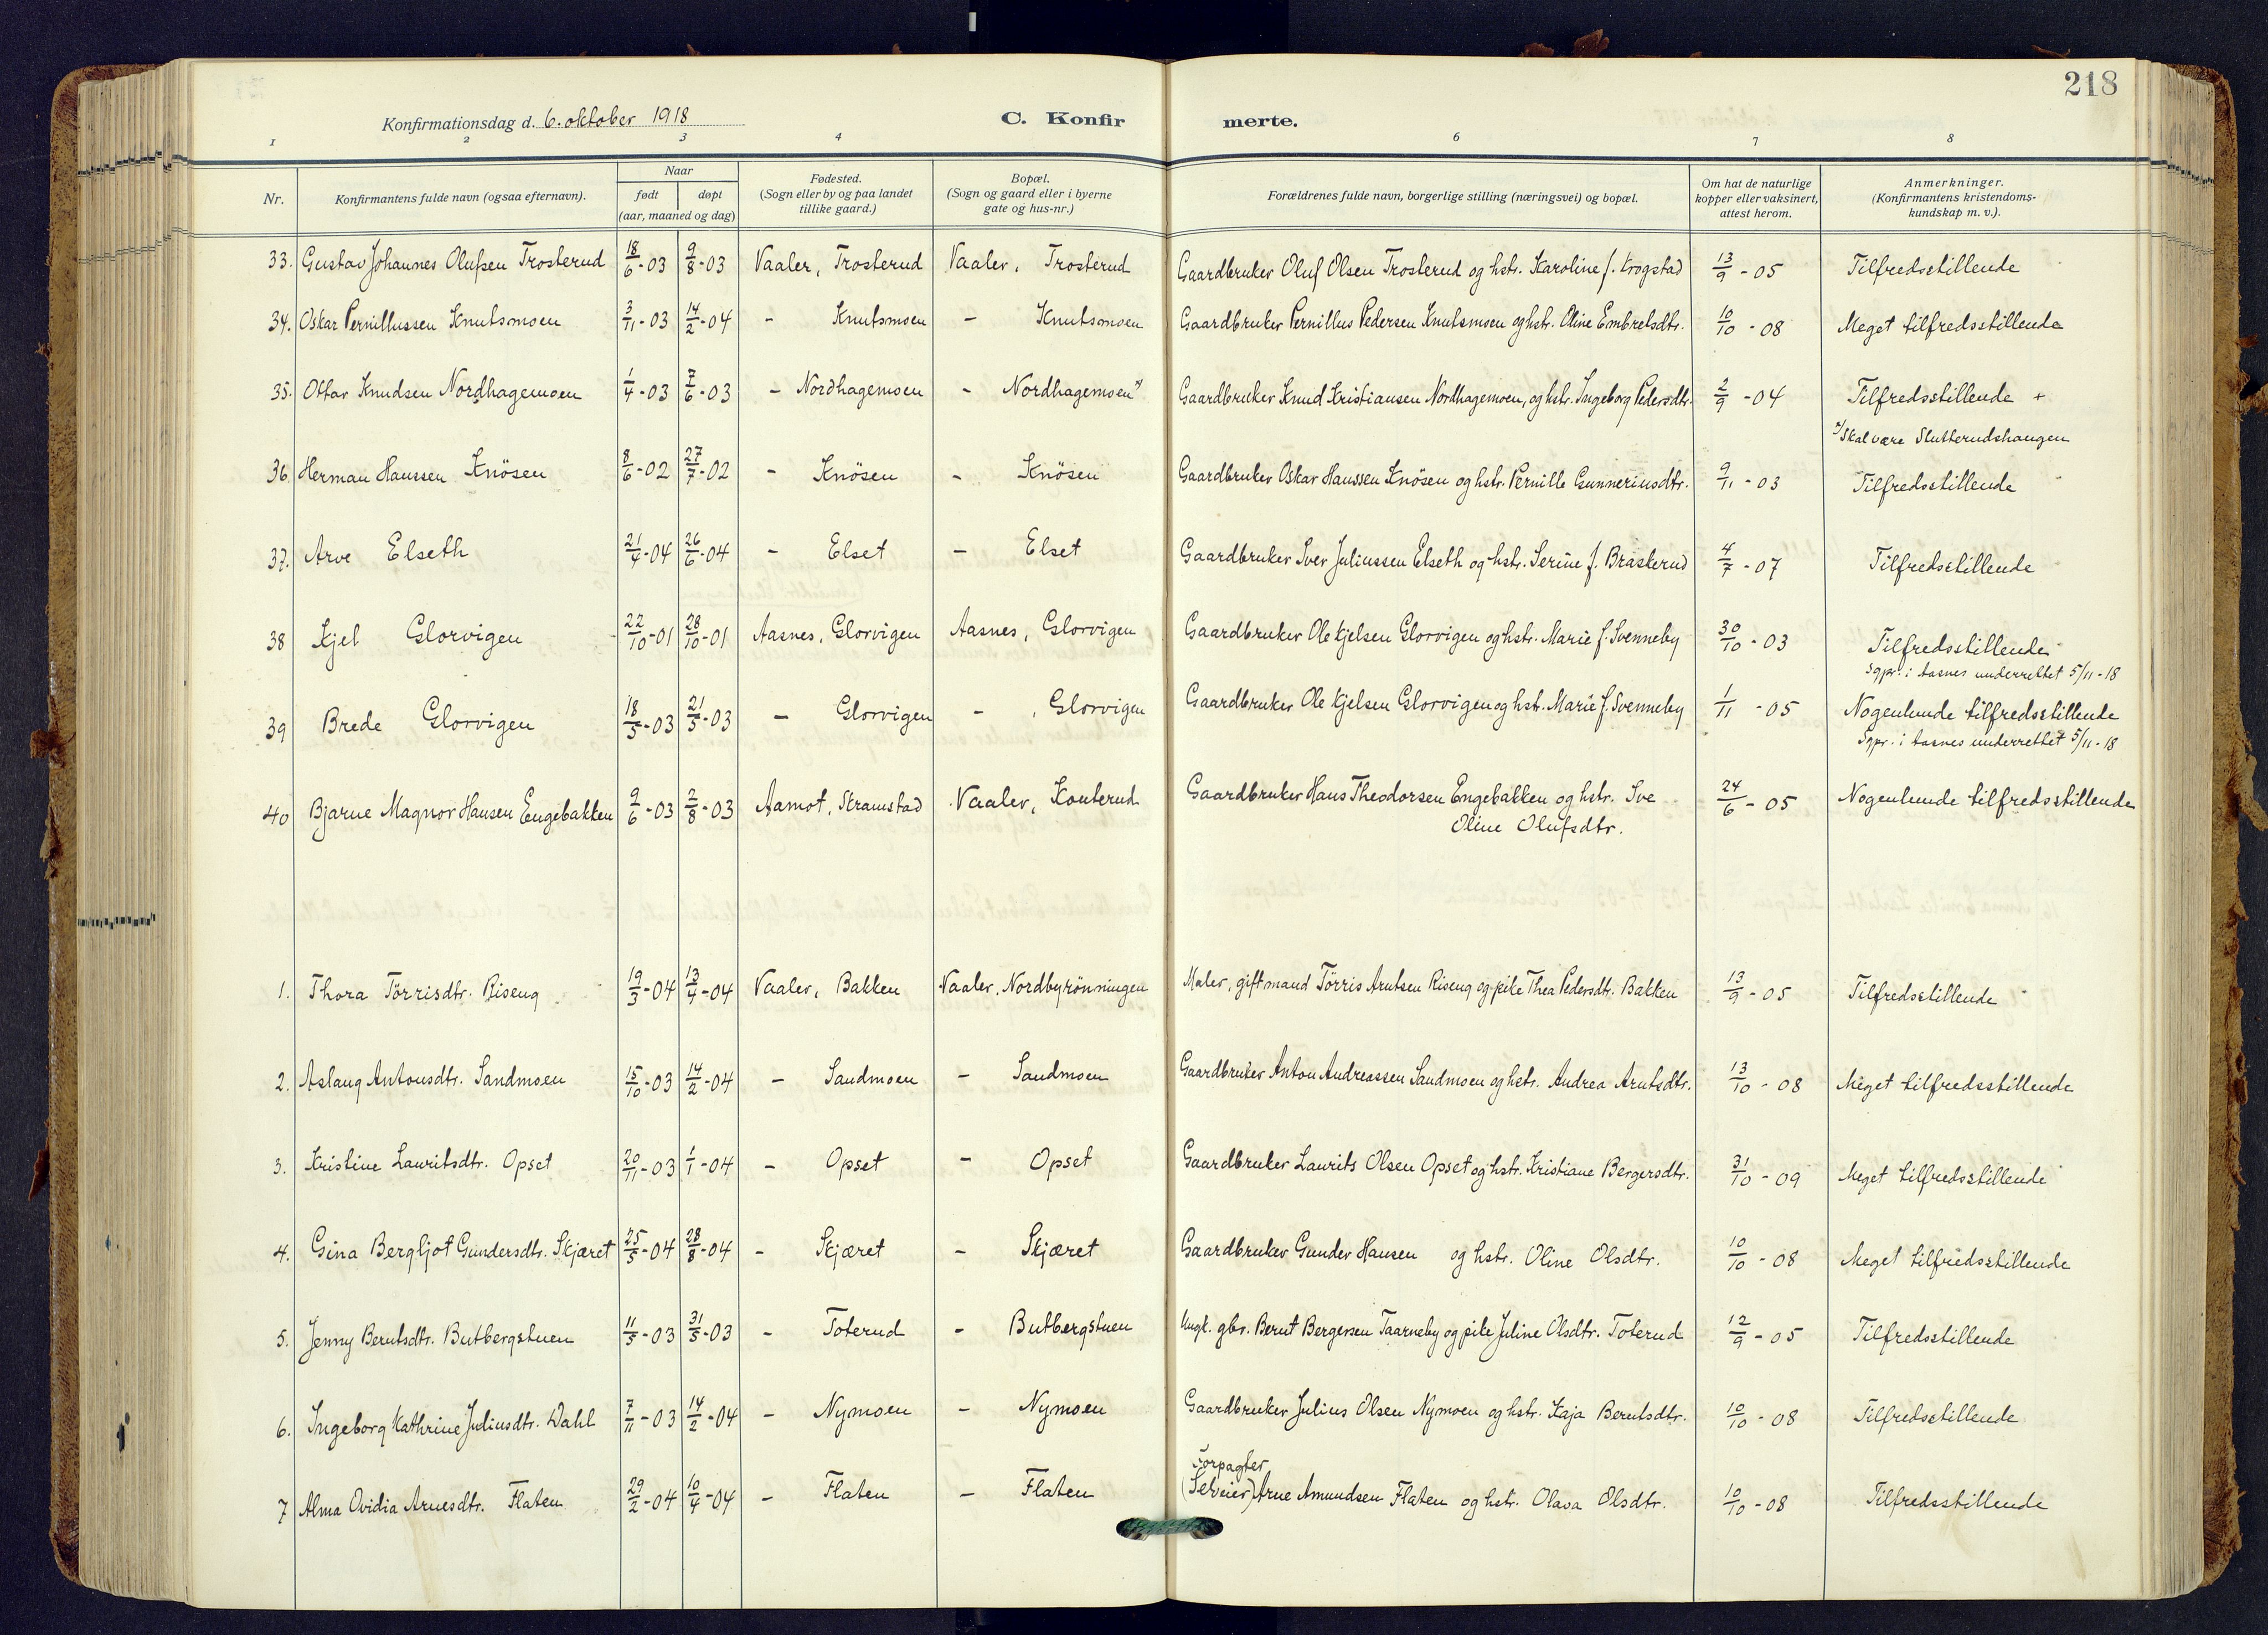 218
Konfirmationsdag d. 6. oktober 1918
C. Konfir merte.
1 2 3 4 6 7 8
Nr. Konfirmantens fulde navn (ogsaa efternavn). Naar født døpt (aar, maaned og dag) Fødested. (Sogn eller by og paa landet tillike gaard.) Bopæl. (Sogn og gaard eller i byerne gate og hus-nr.) Forældrenes fulde navn, borgerlige stilling (næringsvei) og bopæl. Om hat de naturlige kopper eller vaksinert, attest herom. Anmerkninger. (Konfirmantens kristendoms-kundskap m. v.).
33. Gustav Johannes Olufsen Trosterud 18/6-03 9/8-03 Vaaler, Trosterud Vaaler, Trosterud Gaardbruker Oluf Olsen Trosterud og hstr. Karoline f. Krogstad 13/9-05 Tilfredsstillende
34. Oskar Pernillussen Knutsmoen 3/11-03 14/2-04 - Knutsmoen - Knutsmoen Gaardbruker Pernillus Pedersen Knutsmoen og hstr. Oline Embretsdtr. 10/10-08 Meget tilfredsstillende
35. Ottar Knudsen Nordhagemoen 1/4-03 7/6-03 - Nordhagemoen - Nordhagemoen x) Gaardbruker Knud Kristiansen Nordhagemoen, og hstr. Ingeborg Pedersdtr. 2/9-04 Tilfredsstillende +
x) Skal være Slutterudshaugen
36. Herman Hanssen Knösen 8/6-02 27/7-02 - Knösen - Knösen Gaardbruker Oskar Hanssen Knösen og hstr. Pernille Gunneriusdtr. 9/11-03 Tilfredsstillende
37. Arve Elseth 21/4-04 26/6-04 - Elset - Elset Gaardbruker Iver Juliussen Elseth og hstr. Serine f. Braskerud 4/7-07 Tilfredsstillende
38 Kjel Glorvigen 22/10-01 28/10-01 Aasnes, Glorvigen Aasnes, Glorvigen Gaardbruker Ole Kjelsen Glorvigen og hstr. Marie f. Svenneby 30/10-03 Tilfredsstillende
Sgpr. i Aasnes underrettet 5/11-18
39 Brede Glorvigen 18/5-03 21/5-03 - Glorvigen - , Glorvigen Gaardbruker Ole Kjelsen Glorvigen og hst. Marie f. Svenneby 1/11-05 Nogenlunde tilfredsstillende
Sgpr. i Aasnes underrettet 5/11-18
40 Bjarne Magnor Hansen Engebakken 9/6-03 2/8-03 Aamot, Stramstad Vaaler, Konterud Gaardbruker Hans Theodorsen Engebakken og hstr. Ive 24/6-05 Nogenlunde tilfredsstillende
Oline Olufsdtr.
1. Thora Törrisdtr. Riseng 19/3-04 13/4-04 Vaaler, Bakken Vaaler, Nordbyrønningen Maler, gift mand Törris Arntsen Riseng og pike Thea Pedersdtr. Bakken 13/9-05 Tilfredsstillende
2. Aslaug Antonsdtr. Sandmoen 15/10-03 14/2-04 - Sandmoen - Sandmoen Gaardbruker Anton Andreassen Sandmoen og hstr. Andrea Arntsdtr. 13/10-08 Meget tilfredsstillende
3. Kristine Lauritsdtr. Opset 20/11-03 1/1-04 - Opset - Opset Gaardbruker Laurits Olsen Opset og hstr. Kristiane Bergersdtr. 31/10-09 Meget tilfredsstillende
4. Gina Bergljot Gundersdtr. Skjæret 25/5-04 28/8-04 - Skjæret - Skjæret Gaardbruker Gunder Hansen og hstr. Oline Olsdtr. 10/10-08 Meget tilfredsstillende
5. Jenny Berntsdtr. Butbergstuen 11/5-03 31/5-03 - Toterud - Butbergstuen Ungk. gbr. Bernt Bergersen Taarneby og pike Juline Olsdtr. Toterud 12/9-05 Tilfredsstillende
6. Ingeborg Kathrine Juliusdtr. Dahl 7/11-03 14/2-04 - Nymoen - Nymoen Gaardbruker Julius Olsen Nymoen og hstr. Kaja Berntsdtr. 10/10-08 Tilfredsstillende
Forpagter
7 Alma Ovidia Arnesdtr. Flaten 29/2-04 10/4-04 - Flaten - Flaten (Selveier) Arne Amundsen Flaten og hstr. Olava Olsdtr. 10/10-08 Tilfredsstillende